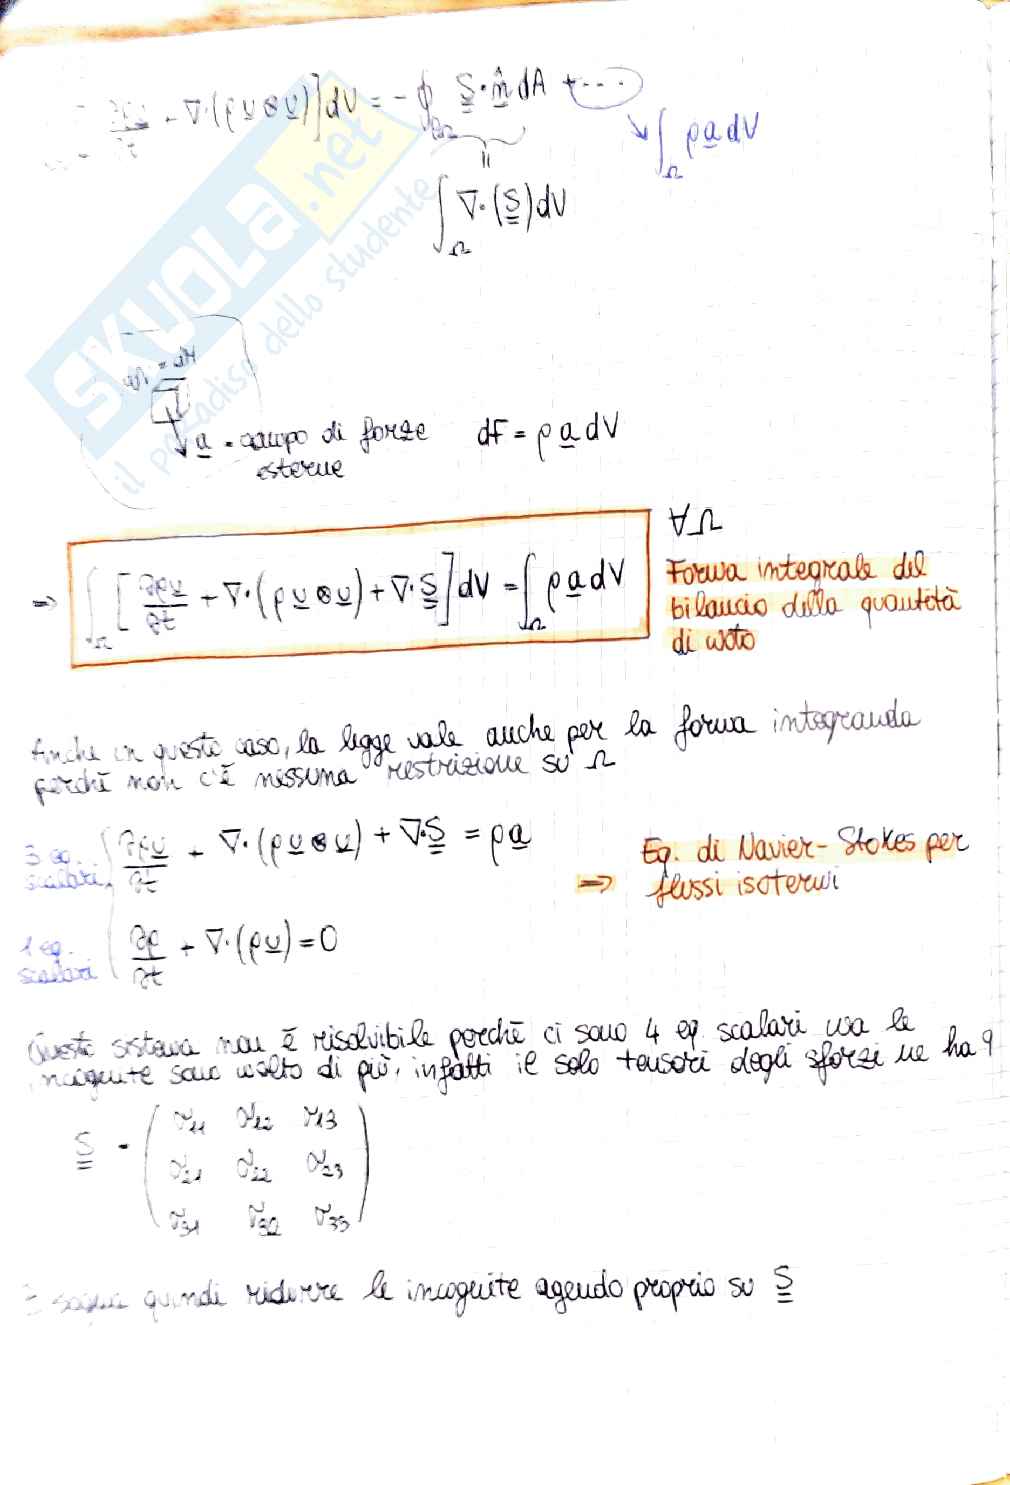 ∂ρu/∂t + ∇·(ρu⊗u)]dV = -∮_∂Ω S·n̂ dA + ...
∫_Ω ρa dV
∫_Ω ∇·(S)dV
SKUOLA.net
il paradiso dello studente
a = campo di forze esterne
dF = ρ a dV
∀Ω
⇒ ∫_Ω [∂ρu/∂t + ∇·(ρu⊗u) + ∇·S]dV = ∫_Ω ρa dV
Forma integrale del
bilancio della quantità
di moto
Anche in questo caso, la legge vale anche per la forma integranda
perchè non c'è nessuna restrizione su Ω
3 eq. scalari
∂ρu/∂t + ∇·(ρu⊗u) + ∇·S = ρa
⇒ Eq. di Navier-Stokes per
flussi isotermi
1 eq. scalari
∂ρ/∂t + ∇·(ρu) = 0
Questo sistema non è risolvibile perchè ci sono 4 eq. scalari ma le
incognite sono molto di più, infatti il solo tensori degli sforzi ne ha 9
S = (σ11 σ12 σ13
σ21 σ22 σ23
σ31 σ32 σ33)
quindi ridurre le incognite agendo proprio su S